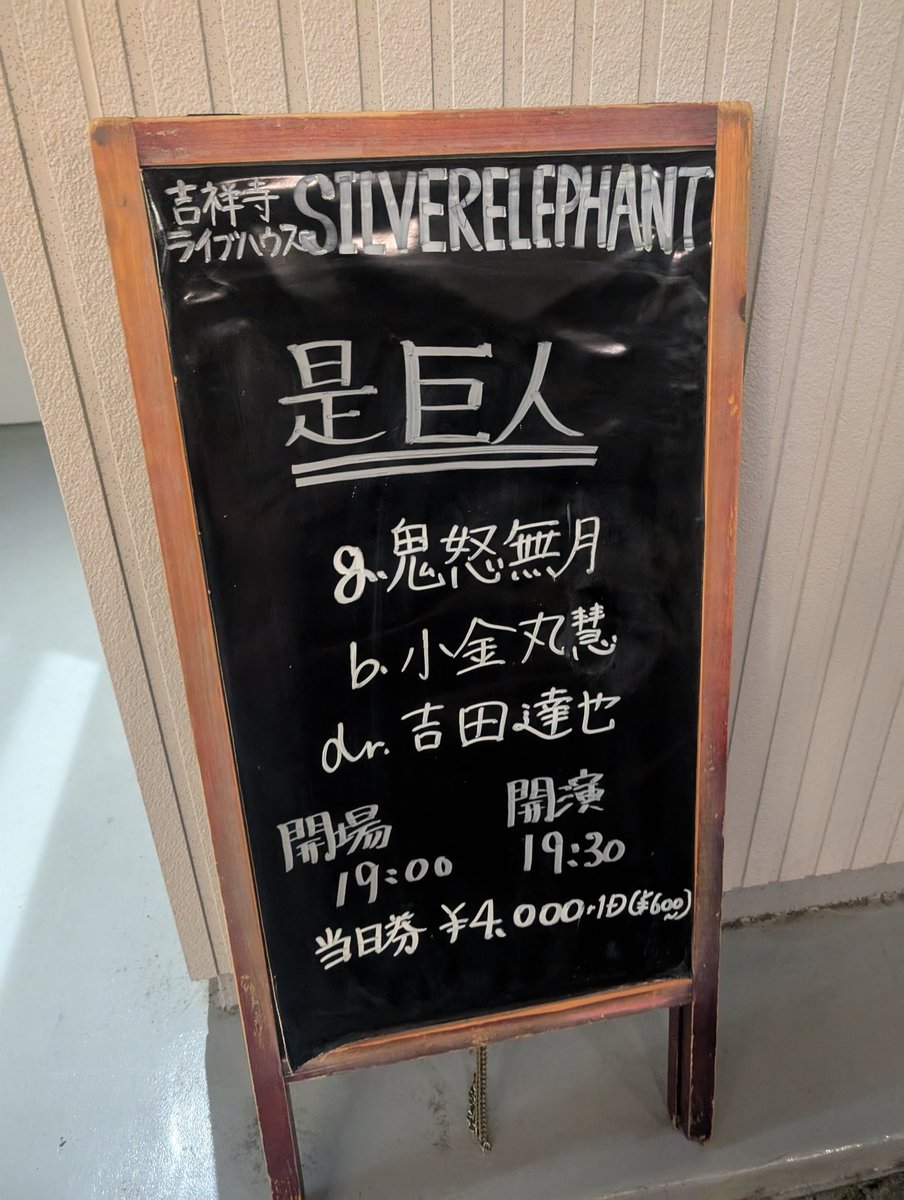 吉祥寺
ライブハウス SILVERELEPHANT
是巨人
g.鬼怒無月
b.小金丸慧
dr.吉田達也
開場 開演
19:00 19:30
当日券 ¥4.000.+1D(¥600~)